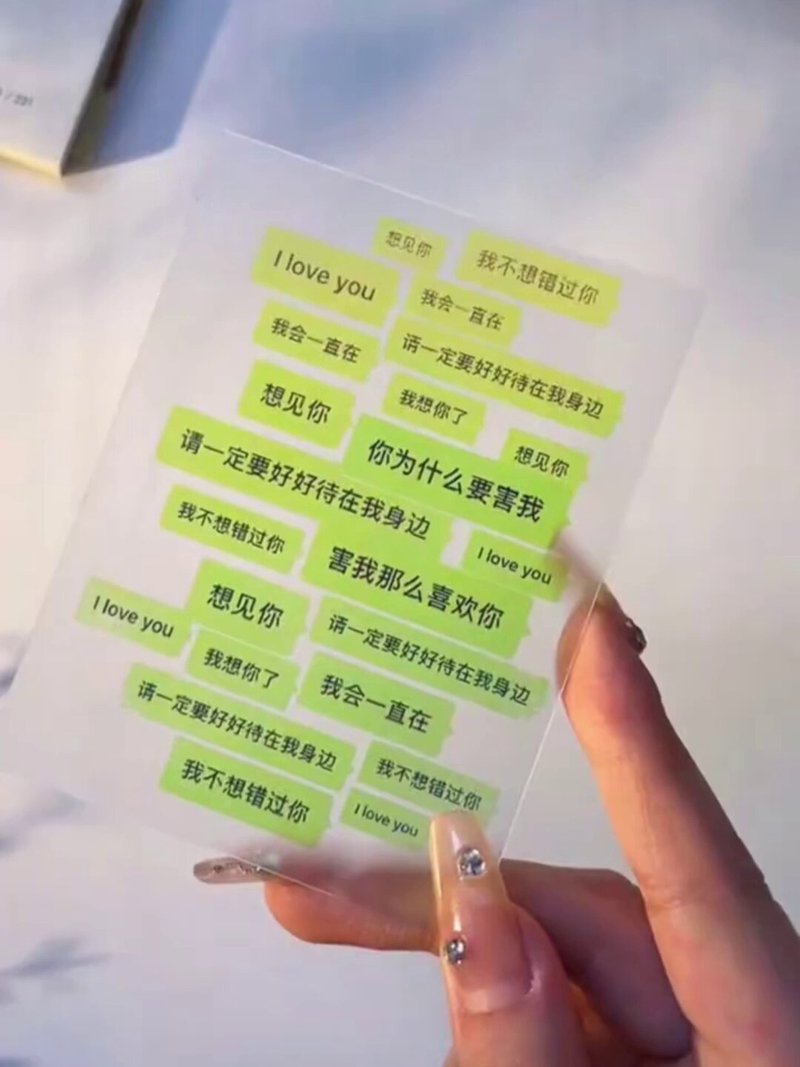 想见你
我不想错过你
I love you
我会一直在
我会一直在
请一定要好好待在我身边
想见你
我想你了
想见你
请一定要好好待在我身边
你为什么要害我
我不想错过你
I love you
害我那么喜欢你
想见你
I love you
请一定要好好待在我身边
我想你了
我会一直在
请一定要好好待在我身边
我不想错过你
我不想错过你
I love you